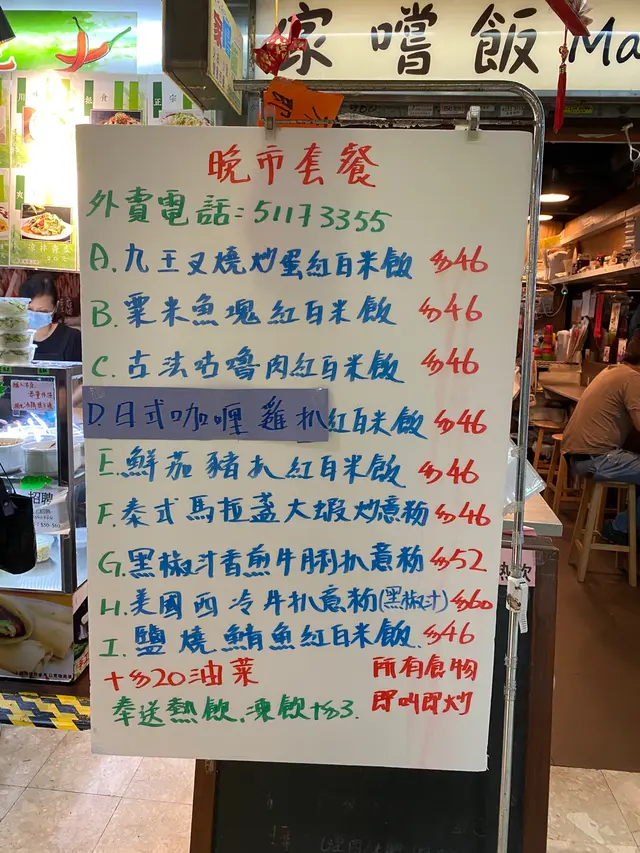 家嚐飯 Ma
晚市套餐
外賣電話:51173355
A.九王叉燒炒蛋紅白米飯 $46
B.粟米魚塊紅白米飯 $46
C.古法咕嚕肉紅白米飯 $46
D.日式咖喱雞扒紅白米飯 $46
E.鮮茄豬扒紅白米飯 $46
F.泰式馬拉盞大蝦炒意粉 $46
G.黑椒汁香煎牛脷扒意粉 $52
H.美國西冷牛扒意粉(黑椒汁) $60
I.鹽燒鯖魚紅白米飯 $46
+$20油菜
所有食物
即叫即炒
奉送熱飲,凍飲+$3.
招聘
熱飲